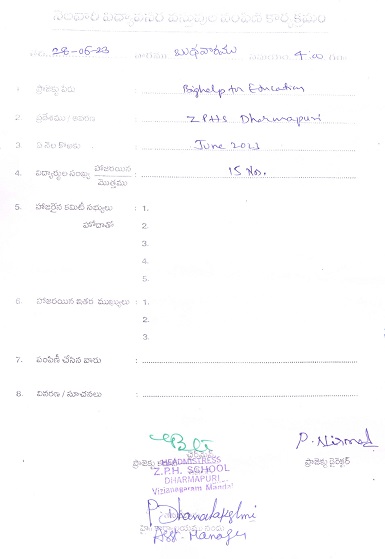 నెలవారీ విద్యావసర వస్తువుల పంపిణీ కార్యక్రమం
28-06-23 వారము బుధవారము సమయం 4:00 గం.
1. ప్రాజెక్టు పేరు : Bighelp for Education
2. ప్రదేశము / : ZPHS Dharmapuri
3. ఏ నెల కొరకు : June 2023
4. విద్యార్థుల సంఖ్య హాజరయిన : 15 No.
మొత్తము
5. హాజరైన కమిటీ సభ్యులు : 1.
హోదాతో 2.
3.
4.
5.
6. హాజరయిన ఇతర ముఖ్యులు : 1.
2.
3.
7. పంపిణీ చేసిన వారు :
8. వివరణ / సూచనలు :
P. Nirmal
ప్రాజెక్టు ప్రాజెక్టు డైరెక్టర్
HEADMISTRESS
Z.P.H. SCHOOL
DHARMAPURI
Vizianagaram Mandal
P. Dhanalakshmi
Asst. Manager